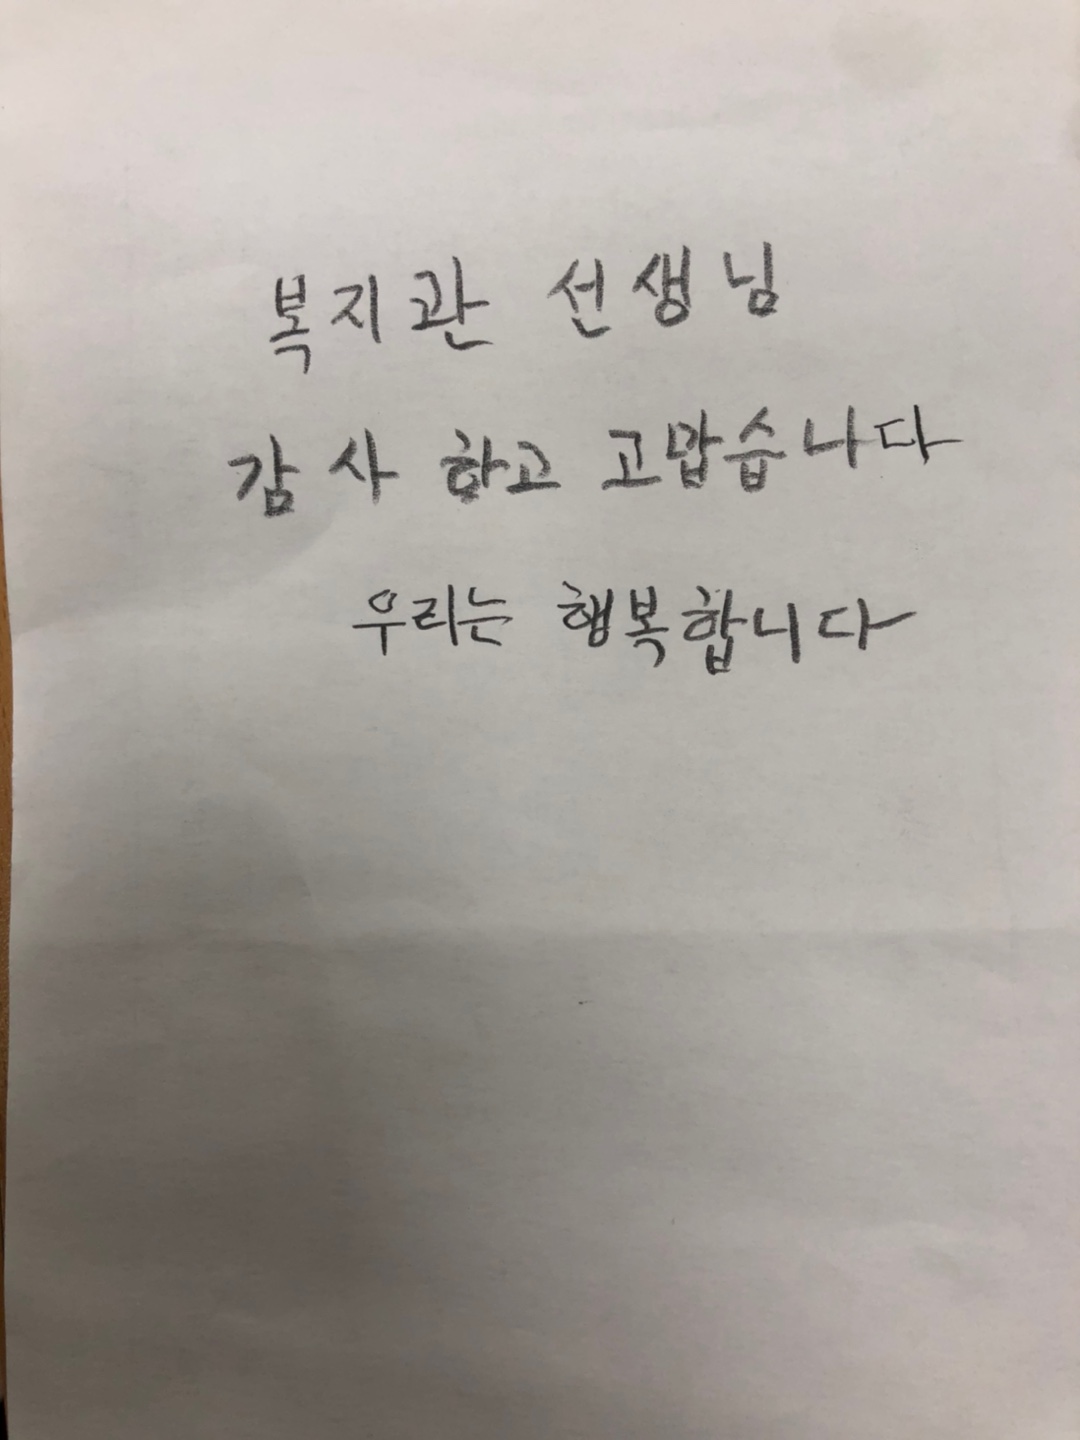 복지관 선생님
감사 하고 고맙습나다
우리는 행복합니다